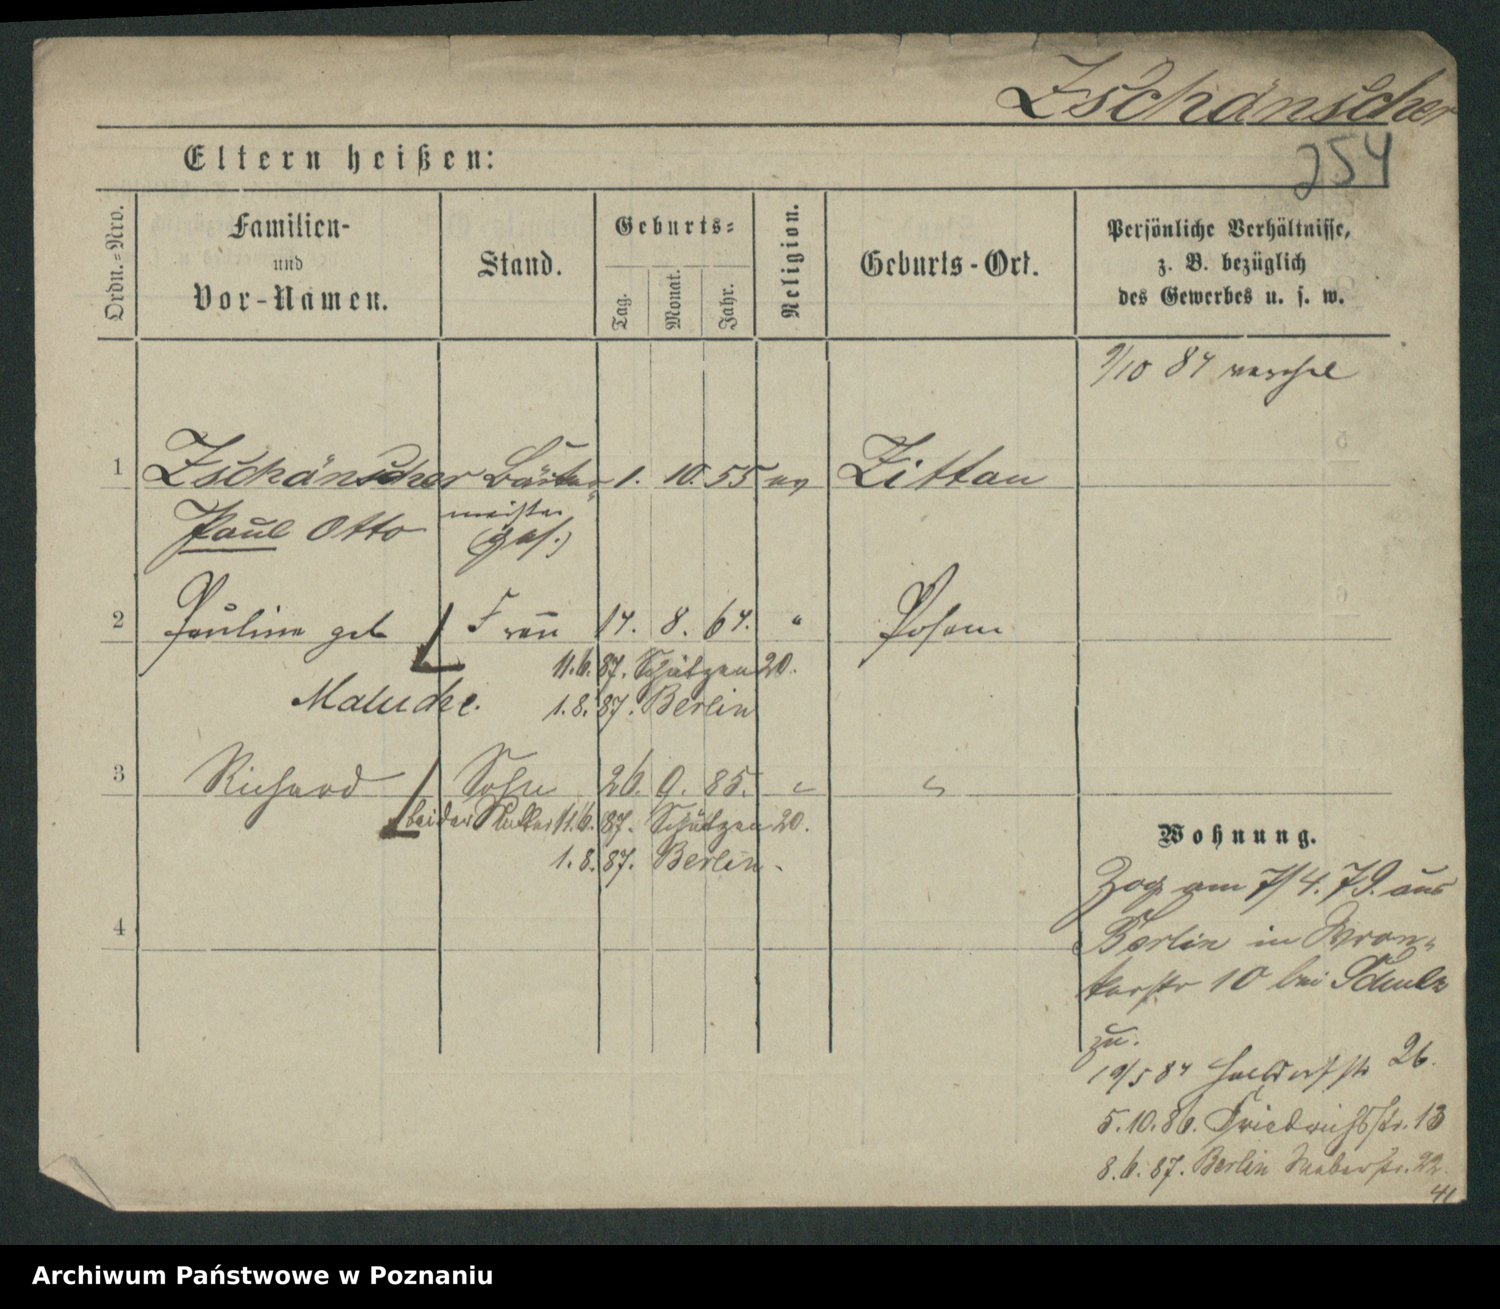 Zschänscher
254
Eltern heißen:
Ordn.-Nro.
Familien-
und
Vor-Namen.
Stand.
Geburts-
Tag.
Monat.
Jahr.
Religion.
Geburts-Ort.
Persönliche Verhältnisse,
z. B. bezüglich
des Gewerbes u. s. w.
9/10 84
1 Zschänscher 1. 10. 55 ev Zittau
Paul Otto meister
2 Pauline geb Frau 14. 8. 64. " Posen
11.6.87. Schützen 20.
Maluche. 1.8.87. Berlin
3 Richard Sohn 26. 9. 85. " "
bei der Mutter 11.6.87. Schützen 20.
1.8.87. Berlin.
4
Wohnung.
Zog am 7/4.79. aus
Berlin in Wron-
kerstr 10 bei Schulz
zu.
19/5 84 Halbdorfstr 26.
5.10.86. Friedrichsstr. 13
8.6.87. Berlin Weberstr. 22.
41
Archiwum Państwowe w Poznaniu